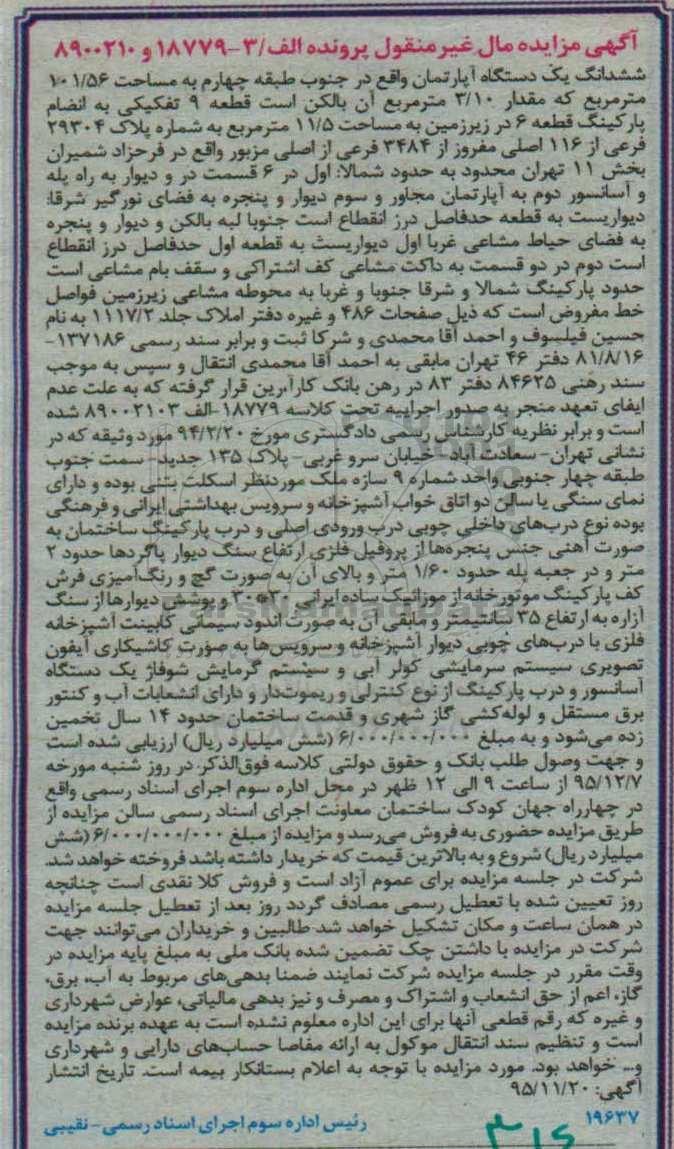 آگهی مزایده مال غیرمنقول پرونده الف/۳-۱۸۷۷۹ و ۸۹۰۰۲۱۰
ششدانگ یک دستگاه آپارتمان واقع در جنوب طبقه چهارم به مساحت ۱۰۱/۵۶
مترمربع که مقدار ۳/۱۰ مترمربع آن بالکن است قطعه ۹ تفکیکی به انضمام
پارکینگ قطعه ۶ در زیرزمین به مساحت ۱۱/۵ مترمربع به شماره پلاک ۲۹۳۰۴
فرعی از ۱۱۶ اصلی مفروز از ۳۴۸۴ فرعی از اصلی مزبور واقع در فرحزاد شمیران
بخش ۱۱ تهران محدود به حدود شمالا: اول در ۶ قسمت در و دیوار به راه پله
و آسانسور دوم به آپارتمان مجاور و سوم دیوار و پنجره به فضای نورگیر شرقا:
دیواریست به قطعه حدفاصل درز انقطاع است جنوبا لبه بالکن و دیوار و پنجره
به فضای حیاط مشاعی غربا اول دیواریست به قطعه اول حدفاصل درز انقطاع
است دوم در دو قسمت به داکت مشاعی کف اشتراکی و سقف بام مشاعی است
حدود پارکینگ شمالا و شرقا جنوبا و غربا به محوطه مشاعی زیرزمین فواصل
خط مفروض است که ذیل صفحات ۴۸۶ و غیره دفتر املاک جلد ۱۱۱۷/۲ به نام
حسین فیلسوف و احمد آقا محمدی و شرکا ثبت و برابر سند رسمی ۱۳۷۱۸۶-
۸۱/۸/۱۶ دفتر ۴۶ تهران مابقی به احمد آقا محمدی انتقال و سپس به موجب
سند رهنی ۸۴۶۲۵ دفتر ۸۳ در رهن بانک کارآفرین قرار گرفته که به علت عدم
ایفای تعهد منجر به صدور اجراییه تحت کلاسه ۱۸۷۷۹-الف ۸۹۰۰۲۱۰۳ شده
است و برابر نظریه کارشناس رسمی دادگستری مورخ ۹۴/۲/۲۰ مورد وثیقه که در
نشانی تهران- سعادت آباد- خیابان سرو غربی- پلاک ۱۳۵ جدید- سمت جنوب
طبقه چهار جنوبی واحد شماره ۹ سازه ملک موردنظر اسکلت بتنی بوده و دارای
نمای سنگی یا سالن دو اتاق خواب آشپزخانه و سرویس بهداشتی ایرانی و فرهنگی
بوده نوع درب‌های داخلی چوبی درب ورودی اصلی و درب پارکینگ ساختمان به
صورت آهنی جنس پنجره‌ها از پروفیل فلزی ارتفاع سنگ دیوار پاگردها حدود ۲
متر و در جعبه پله حدود ۱/۶۰ متر و بالای آن به صورت گچ و رنگ‌آمیزی فرش
کف پارکینگ موتورخانه از موزائیک ساده ایرانی ۳۰*۳۰ و پوشش دیوارها از سنگ
آزاره به ارتفاع ۳۵ سانتیمتر و مابقی آن به صورت اندود سیمانی کابینت آشپزخانه
فلزی با درب‌های چوبی دیوار آشپزخانه و سرویس‌ها به صورت کاشیکاری آیفون
تصویری سیستم سرمایشی کولر آبی و سیستم گرمایش شوفاژ یک دستگاه
آسانسور و درب پارکینگ از نوع کنترلی و ریموت‌دار و دارای انشعابات آب و کنتور
برق مستقل و لوله‌کشی گاز شهری و قدمت ساختمان حدود ۱۴ سال تخمین
زده می‌شود و به مبلغ ۶/۰۰۰/۰۰۰/۰۰۰ (شش میلیارد ریال) ارزیابی شده است
و جهت وصول طلب بانک و حقوق دولتی کلاسه فوق‌الذکر در روز شنبه مورخه
۹۵/۱۲/۷ از ساعت ۹ الی ۱۲ ظهر در محل اداره سوم اجرای اسناد رسمی واقع
در چهارراه جهان کودک ساختمان معاونت اجرای اسناد رسمی سالن مزایده از
طریق مزایده حضوری به فروش می‌رسد و مزایده از مبلغ ۶/۰۰۰/۰۰۰/۰۰۰ (شش
میلیارد ریال) شروع و به بالاترین قیمت که خریدار داشته باشد فروخته خواهد شد.
شرکت در جلسه مزایده برای عموم آزاد است و فروش کلا نقدی است چنانچه
روز تعیین شده با تعطیل رسمی مصادف گردد روز بعد از تعطیل جلسه مزایده
در همان ساعت و مکان تشکیل خواهد شد- طالبین و خریداران می‌توانند جهت
شرکت در مزایده با داشتن چک تضمین شده بانک ملی به مبلغ پایه مزایده در
وقت مقرر در جلسه مزایده شرکت نمایند ضمنا بدهی‌های مربوط به آب، برق،
گاز، اعم از حق انشعاب و اشتراک و مصرف و نیز بدهی مالیاتی، عوارض شهرداری
و غیره که رقم قطعی آنها برای این اداره معلوم نشده است به عهده برنده مزایده
است و تنظیم سند انتقال موکول به ارائه مفاصا حساب‌های دارایی و شهرداری
و... خواهد بود. مورد مزایده با توجه به اعلام بستانکار بیمه است. تاریخ انتشار
آگهی: ۹۵/۱۱/۲۰
۱۹۶۳۷ رئیس اداره سوم اجرای اسناد رسمی- نقیبی